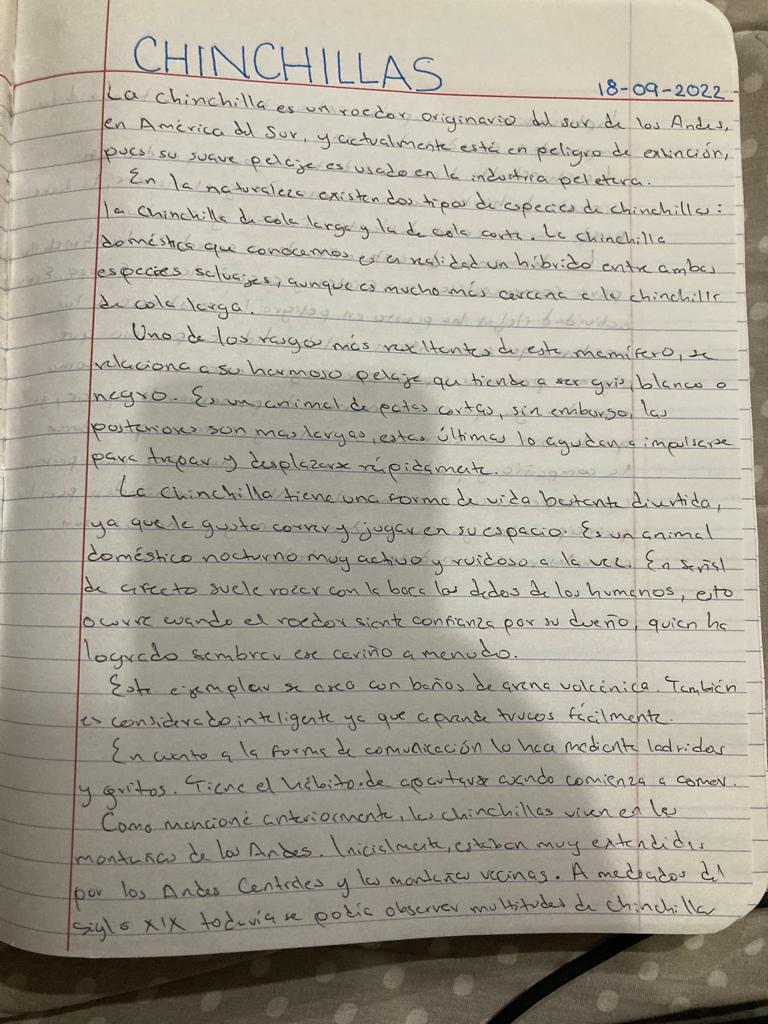 CHINCHILLAS
18-09-2022
La chinchilla es un roedor originario del sur de los Andes,
en América del Sur, y actualmente está en peligro de extinción,
pues su suave pelaje es usado en la industria peletera.
En la naturaleza existen dos tipos de especies de chinchillas:
la chinchilla de cola larga y la de cola corta. La chinchilla
doméstica que conocemos es en realidad un híbrido entre ambas
especies salvajes, aunque es mucho más cercana a la chinchilla
de cola larga.
Uno de los rasgos más resaltantes de este mamífero, se
relaciona a su hermoso pelaje que tiende a ser gris, blanco o
negro. Es un animal de patas cortas, sin embargo, las
posteriores son mas largas, estas últimas lo ayudan a impulsarse
para trepar y desplazarse rápidamente.
La chinchilla tiene una forma de vida bastante divertida,
ya que le gusta correr y jugar en su espacio. Es un animal
doméstico nocturno muy activo y ruidoso a la vez. En señal
de afecto suele rozar con la boca los dedos de los humanos, esto
ocurre cuando el roedor siente confianza por su dueño, quien ha
logrado sembrar ese cariño a menudo.
Este ejemplar se asea con baños de arena volcánica. También
es considerado inteligente ya que aprende trucos fácilmente.
En cuanto a la forma de comunicación lo hace mediante ladridos
y gritos. Tiene el hábito de apartarse cuando comienza a comer.
Como mencioné anteriormente, las chinchillas viven en las
montañas de los Andes. Inicialmente, estaban muy extendidas
por los Andes Centrales y las montañas vecinas. A mediados del
siglo XIX todavía se podía observar multitudes de chinchillas